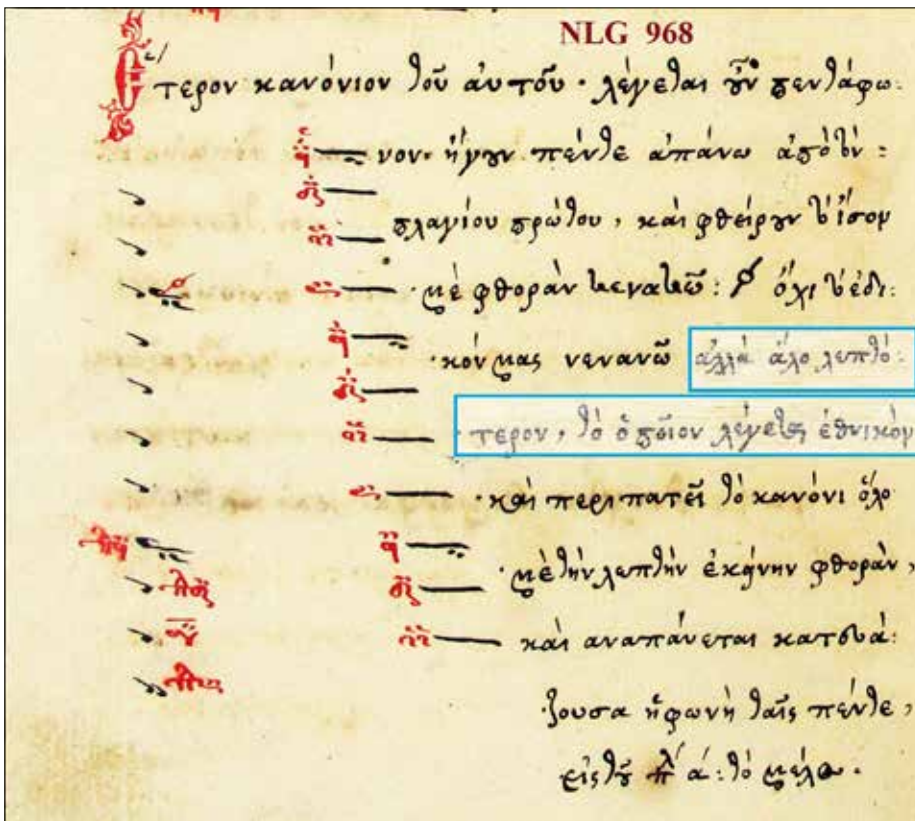 NLG 968
Ἕτερον κανόνιον τοῦ αὐτοῦ · λέγεται οὖν πεντάφω:
νον· ἤγουν πέντε ἀπάνω ἀπὸ τὸν :
πλαγίου πρώτου, καὶ φθείρουν τὸ ἴσον
· μὲ φθορὰν νενανῶ : ὄχι τὸ ἐδι:
· κόν μας νενανῶ ἀλλὰ ἄλο λεπτό:
· τερον, τὸ ὁποῖον λέγεται ἐθνικὸν
· καὶ περιπατεῖ τὸ κανόνι ὅλο
· μὲ τὴν λεπτὴν ἐκήνην φθορὰν,
καὶ ἀναπάνεται κατευά:
·ζουσα ἡ φωνὴ ταῖς πέντε,
εἰς τοῦ πλ ά : τὸ μέλος .